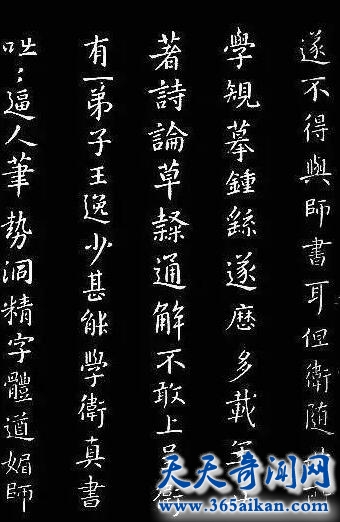 遂不得與師書耳但衛隨
學規摹鍾繇遂歷多載年
著詩論草隸通解不敢上呈衛
有一弟子王逸少甚能學衛真書
咄〻逼人筆勢洞精字體遒媚師
天天奇闻网
www.365aikan.com